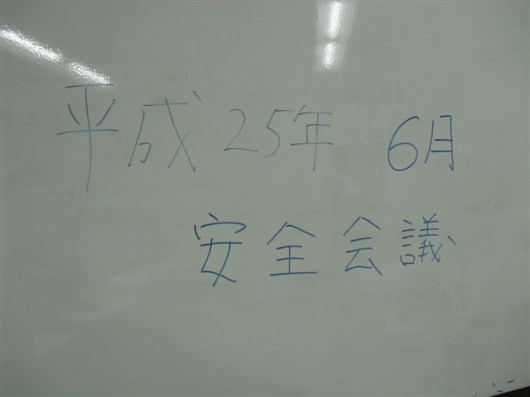 平成25年 6月
安全会議